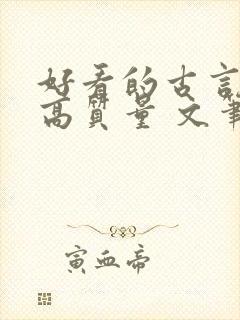 好看的古言
高质量 文笔
寅血帝